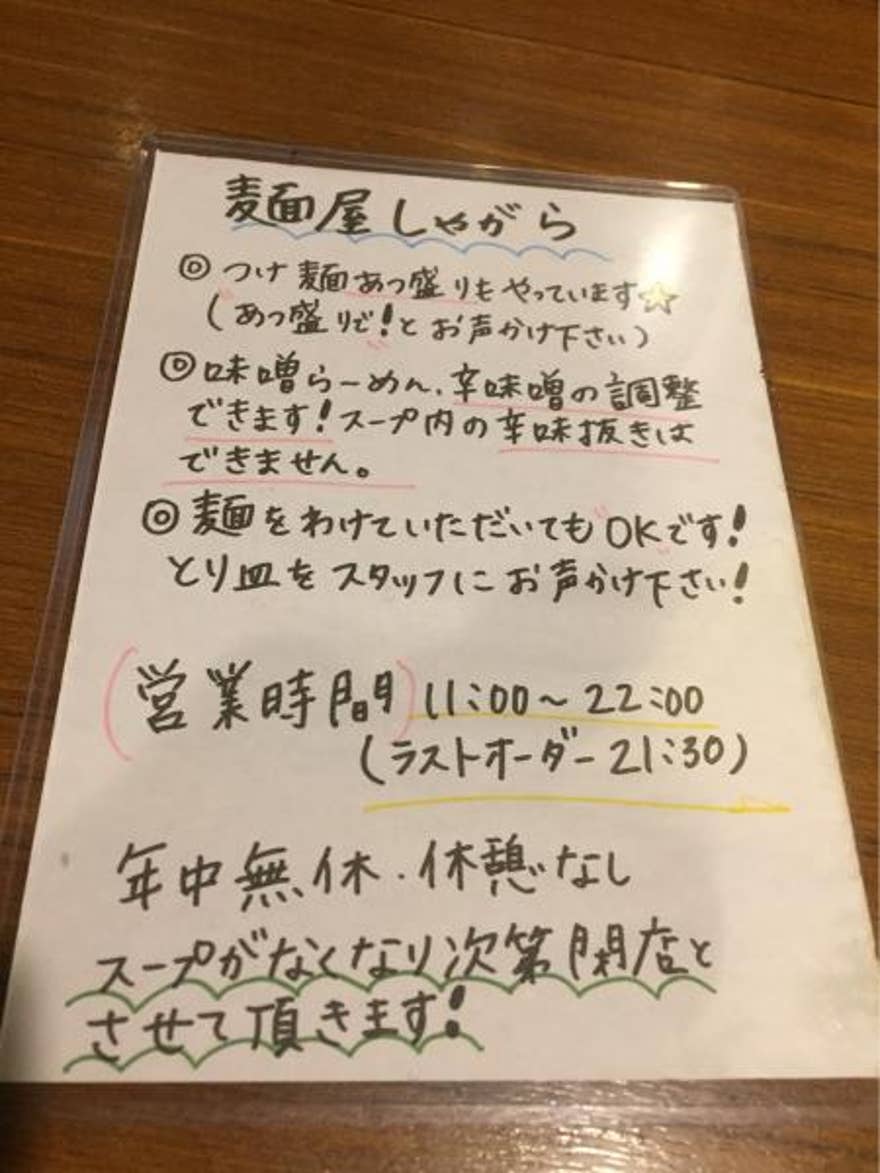 麺屋しゃがら
◎ つけ麺あつ盛りもやっています☆
(あつ盛りで!とお声かけ下さい)
◎ 味噌らーめん、辛味噌の調整
できます!スープ内の辛味抜きは
できません。
◎ 麺をわけていただいてもOKです!
とり皿をスタッフにお声かけ下さい!
(営業時間) 11:00~22:00
(ラストオーダー21:30)
年中無休.休憩なし
スープがなくなり次第閉店と
させて頂きます!